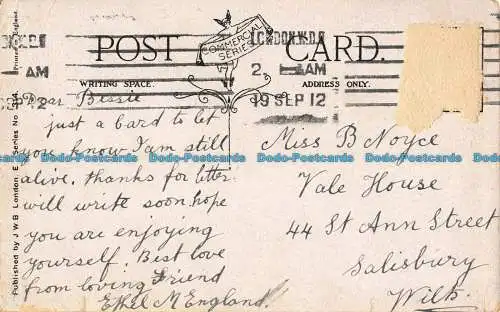 POST CARD.
COMMERCIAL
SERIES
WRITING SPACE.
ADDRESS ONLY.
LONDON W.D.O
2. AM
19 SEP 12
AM
12
Dear Bessie
just a card to let
you know I am still
alive. thanks for letter
will write soon. hope
you are enjoying
yourself. Best love
from loving Friend
Ethel M England.
Miss B Noyce
Vale House
44 St Ann Street
Salisbury
Wilts.
Published by J W B London. E
Series No.
Printed in England.
Dodo-Postcards Dodo-Postcards Dodo-Postcards Dodo-Postcards
Dodo-Postcards Dodo-Postcards Dodo-Postcards Dodo-Postcards